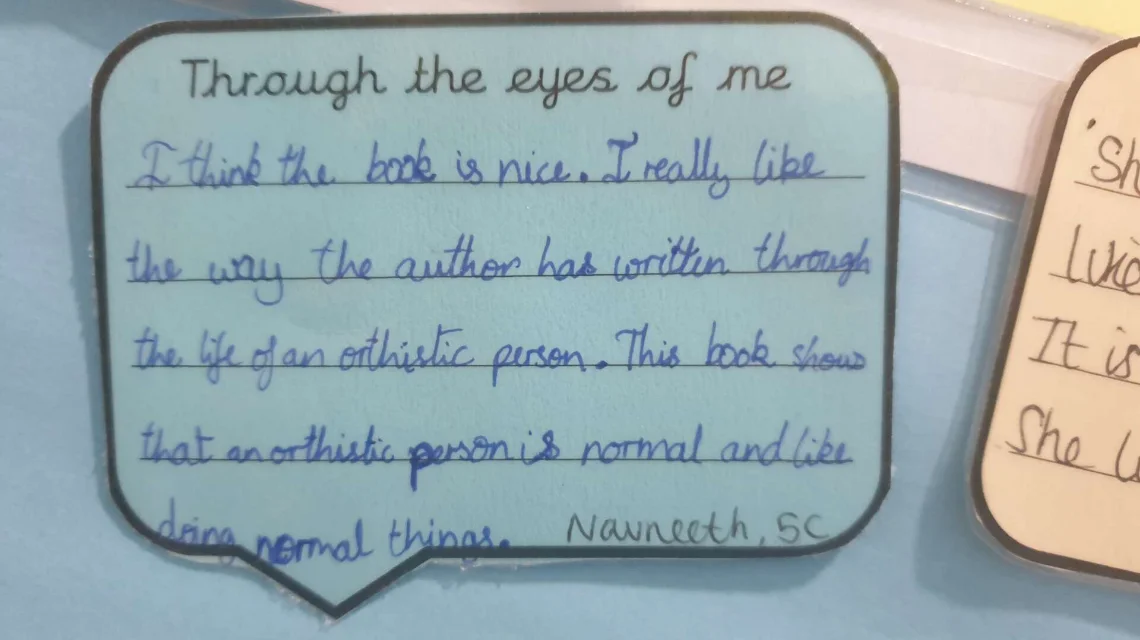 Through the eyes of me
I think the book is nice. I really like
the way the author has written through
the life of an orthistic person. This book shows
that an orthistic person is normal and like
doing normal things. Navneeth, 5C
'Sh
like
It is
She